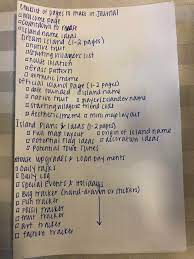 Checklist of pages to make in Journal
□ Welcome page
□ Countdown to
□ Island name ideas
Dream Island (1-2 pages)
□ native fruit
□ starting villagers list
□ house location
□ grass pattern
□ aesthetic/theme
Official Island Page (1-2 pages)
□ dated
□ island name
□ native fruit □ player/islander name
□ starting villagers
□ Aesthetic/theme □ mini map layout
Island Plans & Ideas (1-2 pages)
□ Full map layout □ origin of island name
□ Potential flag ideas □ decoration ideas
□ Potential town tunes
House upgrades & Loan Payments
□ Daily tasks
□ Daily log
□ Special Events & Holidays
□ Bug tracker (hand-drawn or stickers)
□ Fish tracker
□ Fossil tracker
□ Fruit tracker
□ Art tracker
□ tracker